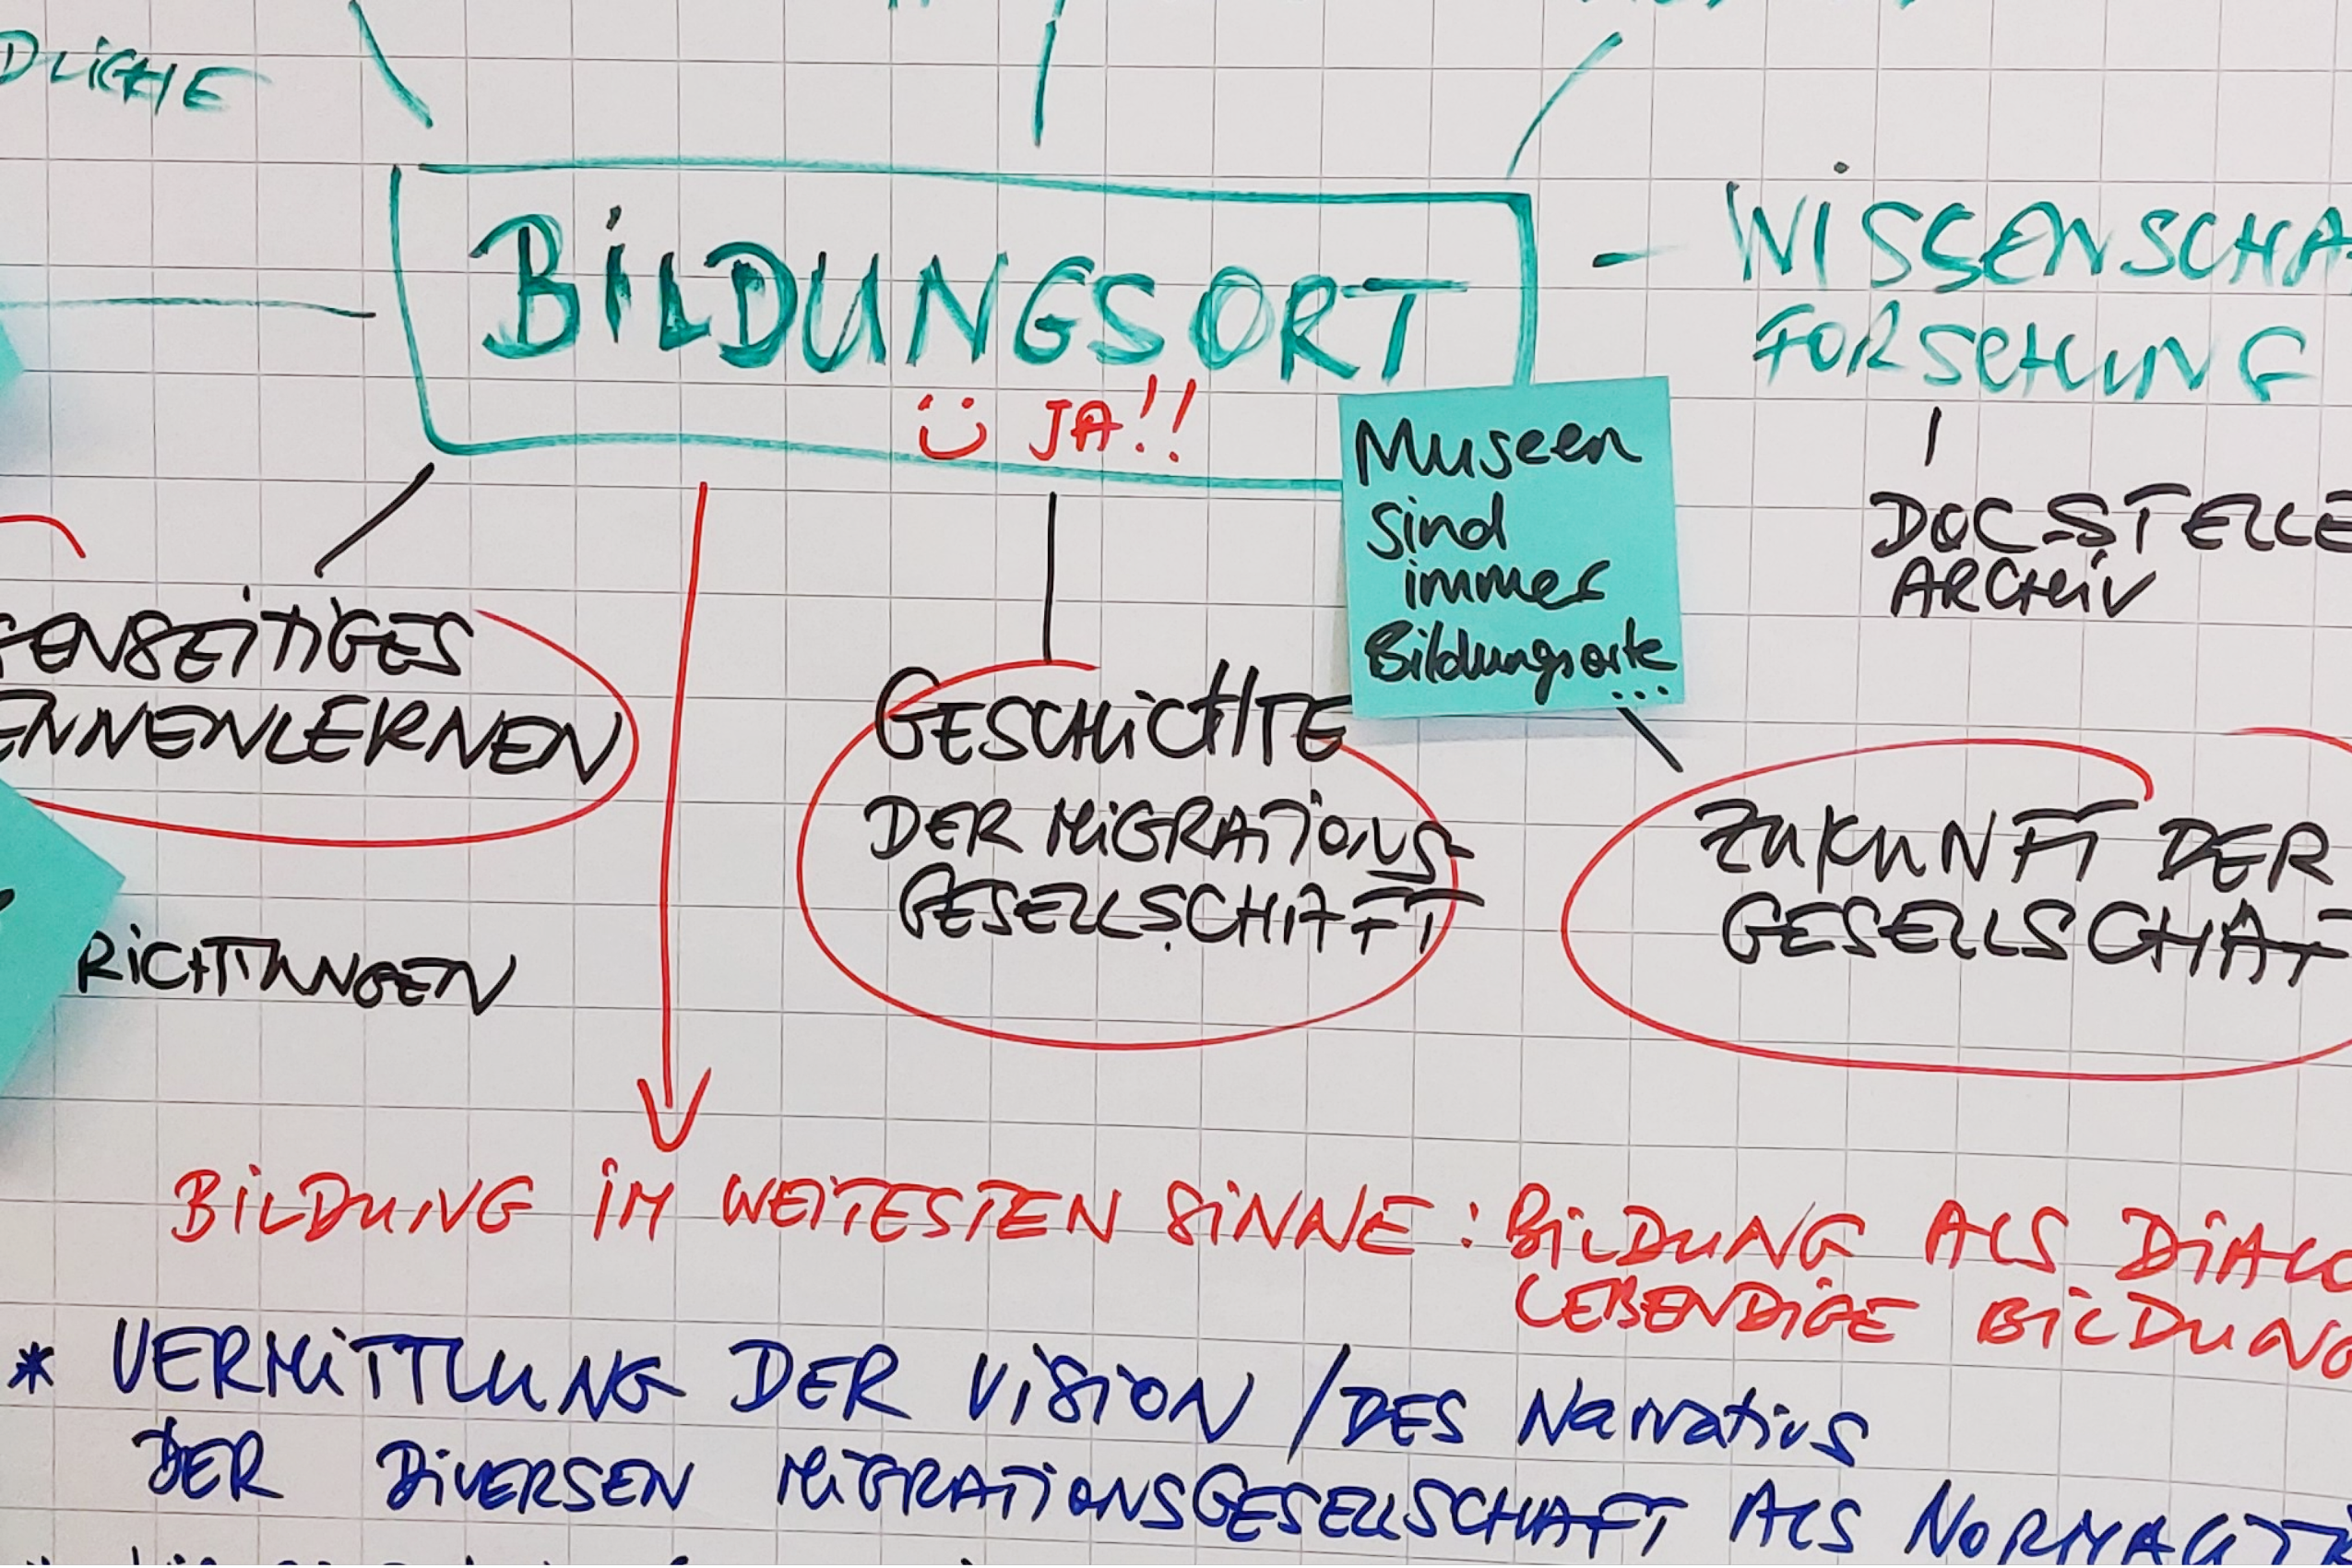 DLICHE
BILDUNGSORT
JA!!
- WISSENSCHA
FORSCHUNG
DOC-STELLE
ARCHIV
Museen
sind
immer
Bildungsorte
...
GENSEITIGES
ENNENLERNEN
GESCHICHTE
DER MIGRATIONS-
GESELLSCHAFT
ZUKUNFT DER
GESELLSCHAF
RICHTUNGEN
BILDUNG IM WEITESTEN SINNE: BILDUNG ALS DIALO
LEBENDIGE BILDUNG
* VERMITTLUNG DER VISION / DES Narrativs
DER DIVERSEN MIGRATIONSGESELLSCHAFT ALS NORMALIT